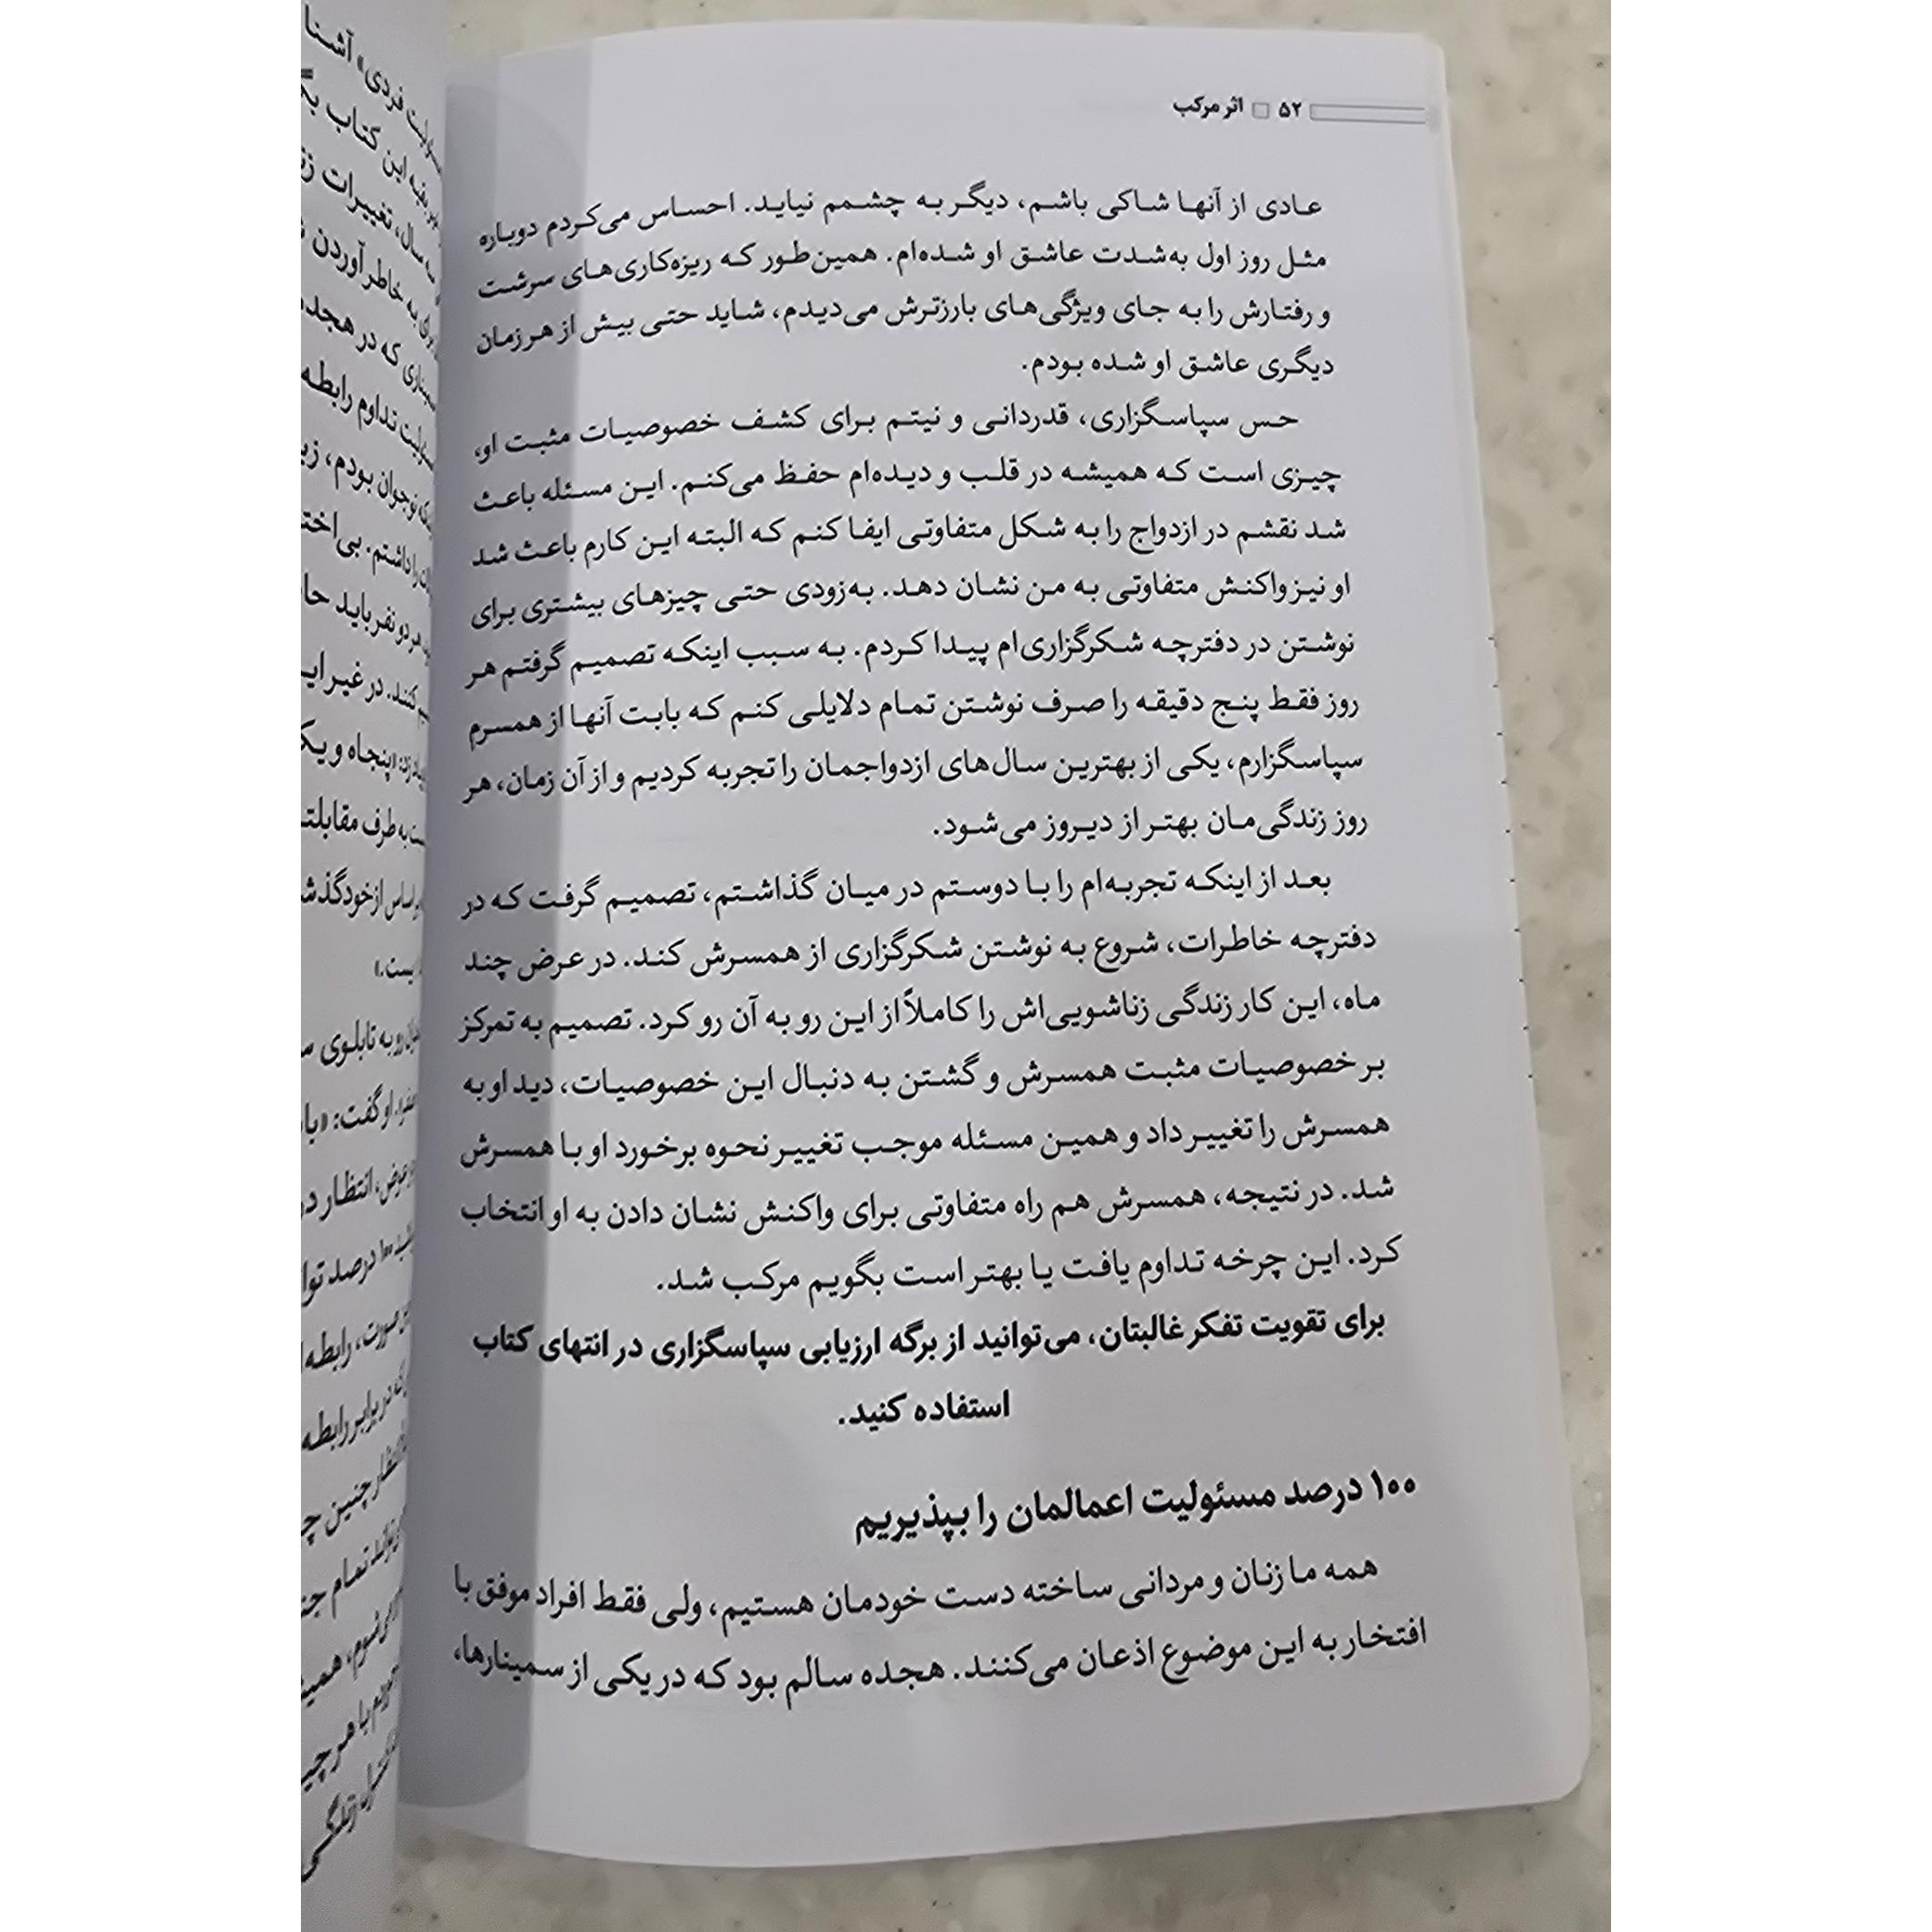 ۵۲ □ اثر مرکب
عادی از آنها شاکی باشم، دیگر به چشمم نیاید. احساس می‌کردم دوباره
مثل روز اول به‌شدت عاشق او شده‌ام. همین‌طور که ریزه‌کاری‌های سرشت
و رفتارش را به جای ویژگی‌های بارزترش می‌دیدم، شاید حتی بیش از هر زمان
دیگری عاشق او شده بودم.
حس سپاسگزاری، قدردانی و نیتم برای کشف خصوصیات مثبت او،
چیزی است که همیشه در قلب و دیده‌ام حفظ می‌کنم. این مسئله باعث
شد نقشم در ازدواج را به شکل متفاوتی ایفا کنم که البته این کارم باعث شد
او نیز واکنش متفاوتی به من نشان دهد. به‌زودی حتی چیزهای بیشتری برای
نوشتن در دفترچه شکرگزاری‌ام پیدا کردم. به سبب اینکه تصمیم گرفتم هر
روز فقط پنج دقیقه را صرف نوشتن تمام دلایلی کنم که بابت آنها از همسرم
سپاسگزارم، یکی از بهترین سال‌های ازدواجمان را تجربه کردیم و از آن زمان، هر
روز زندگی‌مان بهتر از دیروز می‌شود.
بعد از اینکه تجربه‌ام را با دوستم در میان گذاشتم، تصمیم گرفت که در
دفترچه خاطرات، شروع به نوشتن شکرگزاری از همسرش کند. در عرض چند
ماه، این کار زندگی زناشویی‌اش را کاملاً از این رو به آن رو کرد. تصمیم به تمرکز
بر خصوصیات مثبت همسرش و گشتن به دنبال این خصوصیات، دید او به
همسرش را تغییر داد و همین مسئله موجب تغییر نحوه برخورد او با همسرش
شد. در نتیجه، همسرش هم راه متفاوتی برای واکنش نشان دادن به او انتخاب
کرد. این چرخه تداوم یافت یا بهتر است بگویم مرکب شد.
برای تقویت تفکر غالبتان، می‌توانید از برگه ارزیابی سپاسگزاری در انتهای کتاب
استفاده کنید.
۱۰۰ درصد مسئولیت اعمالمان را بپذیریم
همه ما زنان و مردانی ساخته دست خودمان هستیم، ولی فقط افراد موفق با
افتخار به این موضوع اذعان می‌کنند. هجده سالم بود که در یکی از سمینارها،